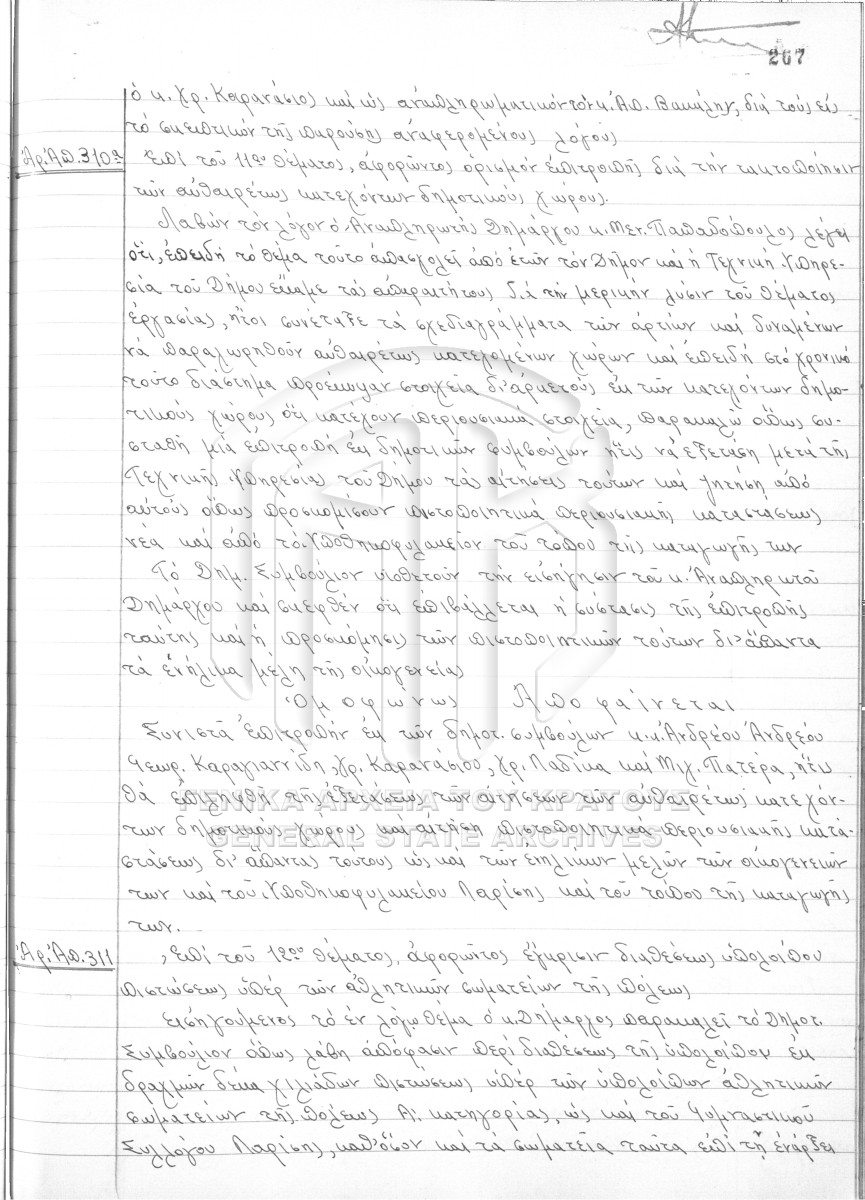 267
ὁ κ. Χρ. Καρανάσιος καί ὡς ἀναπληρωματικόν τόν κ. Ἀπ. Βακάλην, διά τούς εἰς
τό σκεπτικόν τῆς παρούσης ἀναφερομένους λόγους
Ἀρ. Ἀπ. 310α
Ἐπί τοῦ 11ου θέματος, ἀφορῶντος ὁρισμόν ἐπιτροπῆς διά τήν τακτοποίησιν
τῶν αὐθαιρέτως κατεχόντων δημοτικούς χώρους.
Λαβών τόν λόγον ὁ Ἀναπληρωτής Δημάρχου κ. Μεν. Παπαδόπουλος λέγει
ὅτι, ἐπειδή τό θέμα τοῦτο ἀπασχολεῖ ἀπό ἐτῶν τόν Δῆμον καί ἡ Τεχνική Ὑπηρε-
σία τοῦ Δήμου ἔκαμε τάς ἀπαραιτήτους διά τήν μερικήν λύσιν τοῦ θέματος
ἐργασίας, ἤτοι συνέταξε τά σχεδιαγράμματα τῶν ἀρτίων καί δυναμένων
νά παραχωρηθοῦν αὐθαιρέτως κατεχομένων χώρων καί ἐπειδή στό χρονικό
τοῦτο διάστημα προέκυψαν στοιχεία δι' ἀρκετούς ἐκ τῶν κατεχόντων δημο-
τικούς χώρους ὅτι κατέχουν περιουσιακά στοιχεία, παρακαλῶ ὅπως συ-
σταθῆ μία ἐπιτροπή ἐκ δημοτικῶν συμβούλων ἥτις νά ἐξετάση μετά τῆς
Τεχνικῆς Ὑπηρεσίας τοῦ Δήμου τάς αἰτήσεις τούτων καί ζητήση ἀπό
αὐτούς ὅπως προσκομίσουν πιστοποιητικά περιουσιακῆς καταστάσεως
νέα καί ἀπό τό Ὑποθηκοφυλακεῖον τοῦ τόπου τῆς καταγωγῆς των
Τό Δημ. Συμβούλιον υἱοθετοῦν τήν εἰσήγησιν τοῦ κ. Ἀναπληρωτοῦ
Δημάρχου καί σκεφθέν ὅτι ἐπιβάλλεται ἡ σύστασις τῆς ἐπιτροπῆς
ταύτης καί ἡ προσκόμησις τῶν πιστοποιητικῶν τούτων δι' ἅπαντα
τά ἐνήλικα μέλη τῆς οἰκογενείας
Ὁμοφώνως Ἀποφαίνεται
Συνιστᾶ Ἐπιτροπήν ἐκ τῶν δημοτ. συμβούλων κ.κ. Ἀνδρέου Ἀνδρέου
Γεωρ. Καραγιαννίδη, Χρ. Καρανάσιου, Χρ. Παδίκα καί Μιχ. Πατέρα, ἥτις
θά ἐπιληφθῆ τῆς ἐξετάσεως τῶν αἰτήσεων τῶν αὐθαιρέτως κατεχόν-
των δημοτικούς χώρους καί αἰτήση πιστοποιητικά περιουσιακῆς κατα-
στάσεως δι' ἅπαντας τούτους ὡς καί τῶν ἐνηλίκων μελῶν τῶν οἰκογενειῶν
των καί τοῦ Ὑποθηκοφυλακείου Λαρίσης καί τοῦ τόπου τῆς καταγωγῆς
των.
ΓΕΝΙΚΑ ΑΡΧΕΙΑ ΤΟΥ ΚΡΑΤΟΥΣ
GENERAL STATE ARCHIVES
Ἀρ. Ἀπ. 311
Ἐπί τοῦ 12ου θέματος, ἀφορῶντος ἔγκρισιν διαθέσεως ὑπολοίπου
πιστώσεως ὑπέρ τῶν ἀθλητικῶν σωματείων τῆς πόλεως
Εἰσηγούμενος τό ἐν λόγω θέμα ὁ κ. Δήμαρχος παρακαλεῖ τό Δημοτ.
Συμβούλιον ὅπως λάβη ἀπόφασιν περί διαθέσεως τῆς ὑπολοίπου ἐκ
δραχμῶν δέκα χιλιάδων πιστώσεως ὑπέρ τῶν ὑπολοίπων ἀθλητικῶν
σωματείων τῆς πόλεως Α' κατηγορίας, ὡς καί τοῦ Γυμναστικοῦ
Συλλόγου Λαρίσης, καθ' ὅσον καί τά σωματεῖα ταῦτα ἐπί τῇ ἐνάρξει